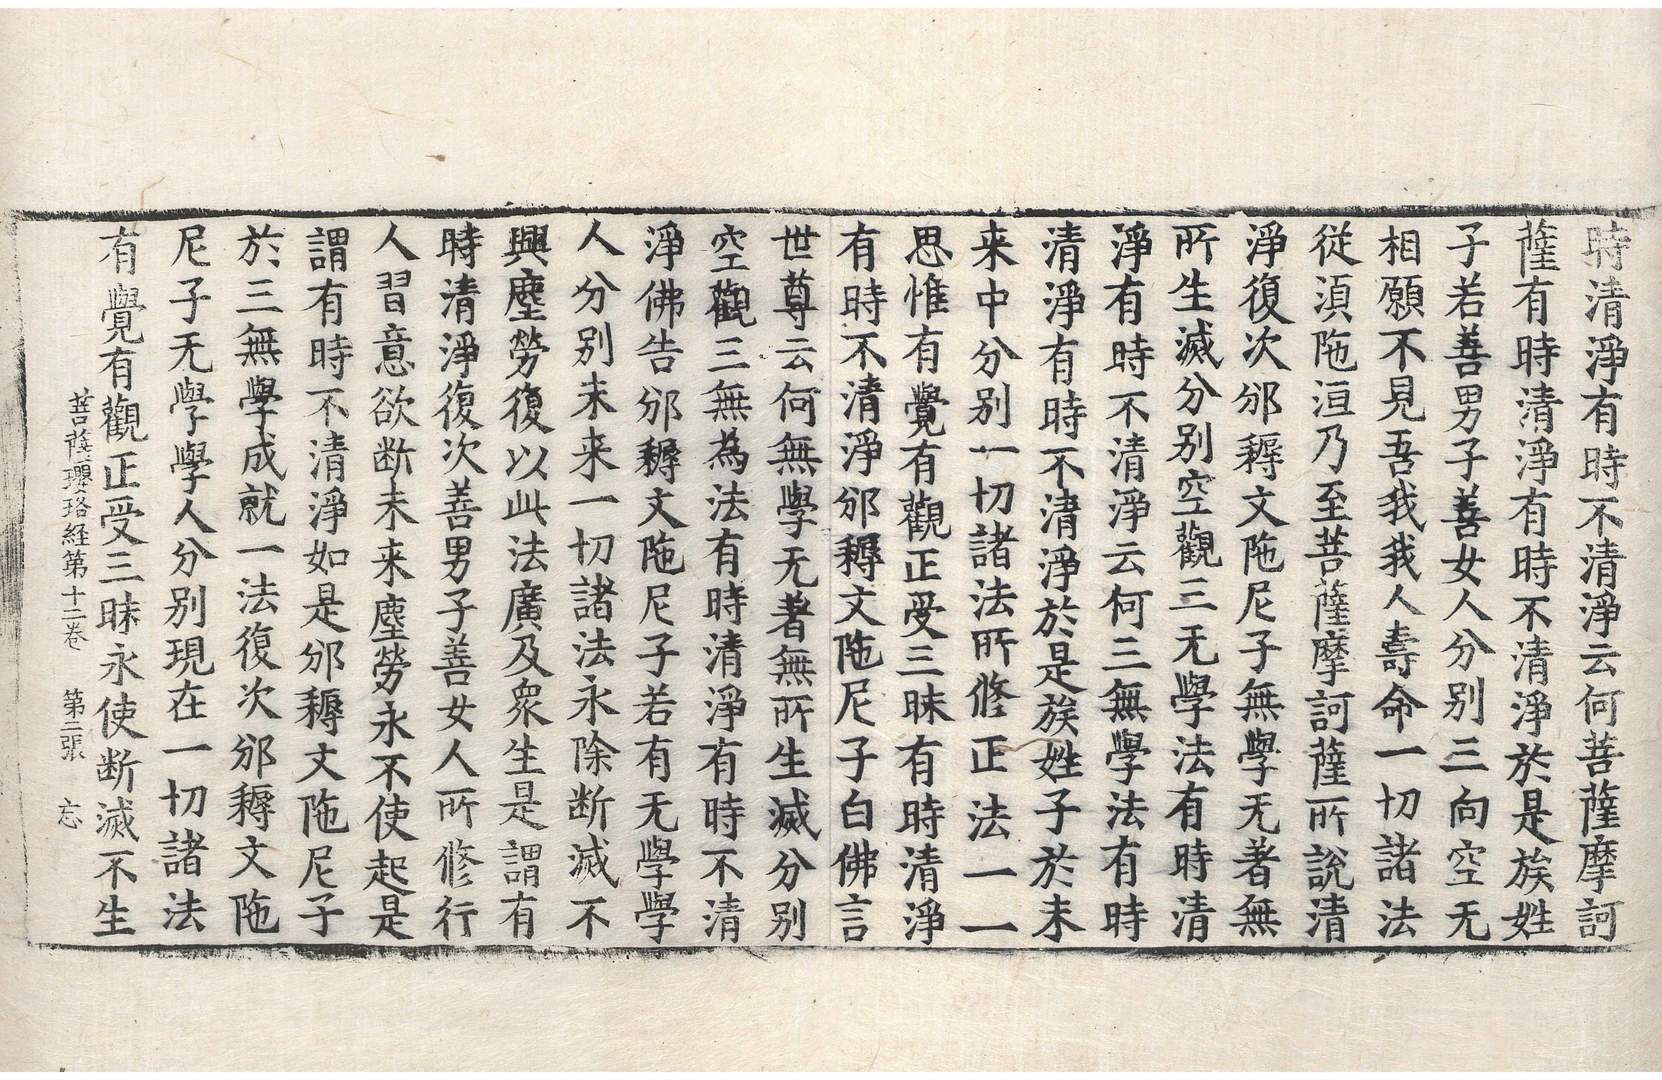 時清淨有時不清淨云何菩薩摩訶
薩有時清淨有時不清淨於是族姓
子若善男子善女人分别三向空无
相願不見吾我我人壽命一切諸法
從湏陁洹乃至菩薩摩訶薩所說清
淨復次邠耨文陁尼子無學无著無
所生滅分别空觀三无學法有時清
淨有時不清淨云何三無學法有時
清淨有時不清淨於是族姓子於未
来中分别一切諸法所修正法一一
思惟有覺有觀正受三昧有時清淨
有時不清淨邠耨文陁尼子白佛言
世尊云何無學无著無所生滅分别
空觀三無為法有時清淨有時不清
淨佛告邠耨文陁尼子若有无學學
人分别未来一切諸法永除断滅不
興塵勞復以此法廣及衆生是謂有
時清淨復次善男子善女人所修行
人習意欲断未来塵勞永不使起是
謂有時不清淨如是邠耨文陁尼子
於三無學成就一法復次邠耨文陁
尼子无學學人分别現在一切諸法
有覺有觀正受三昧永使断滅不生
菩薩瓔珞経第十二卷　第三張　忘